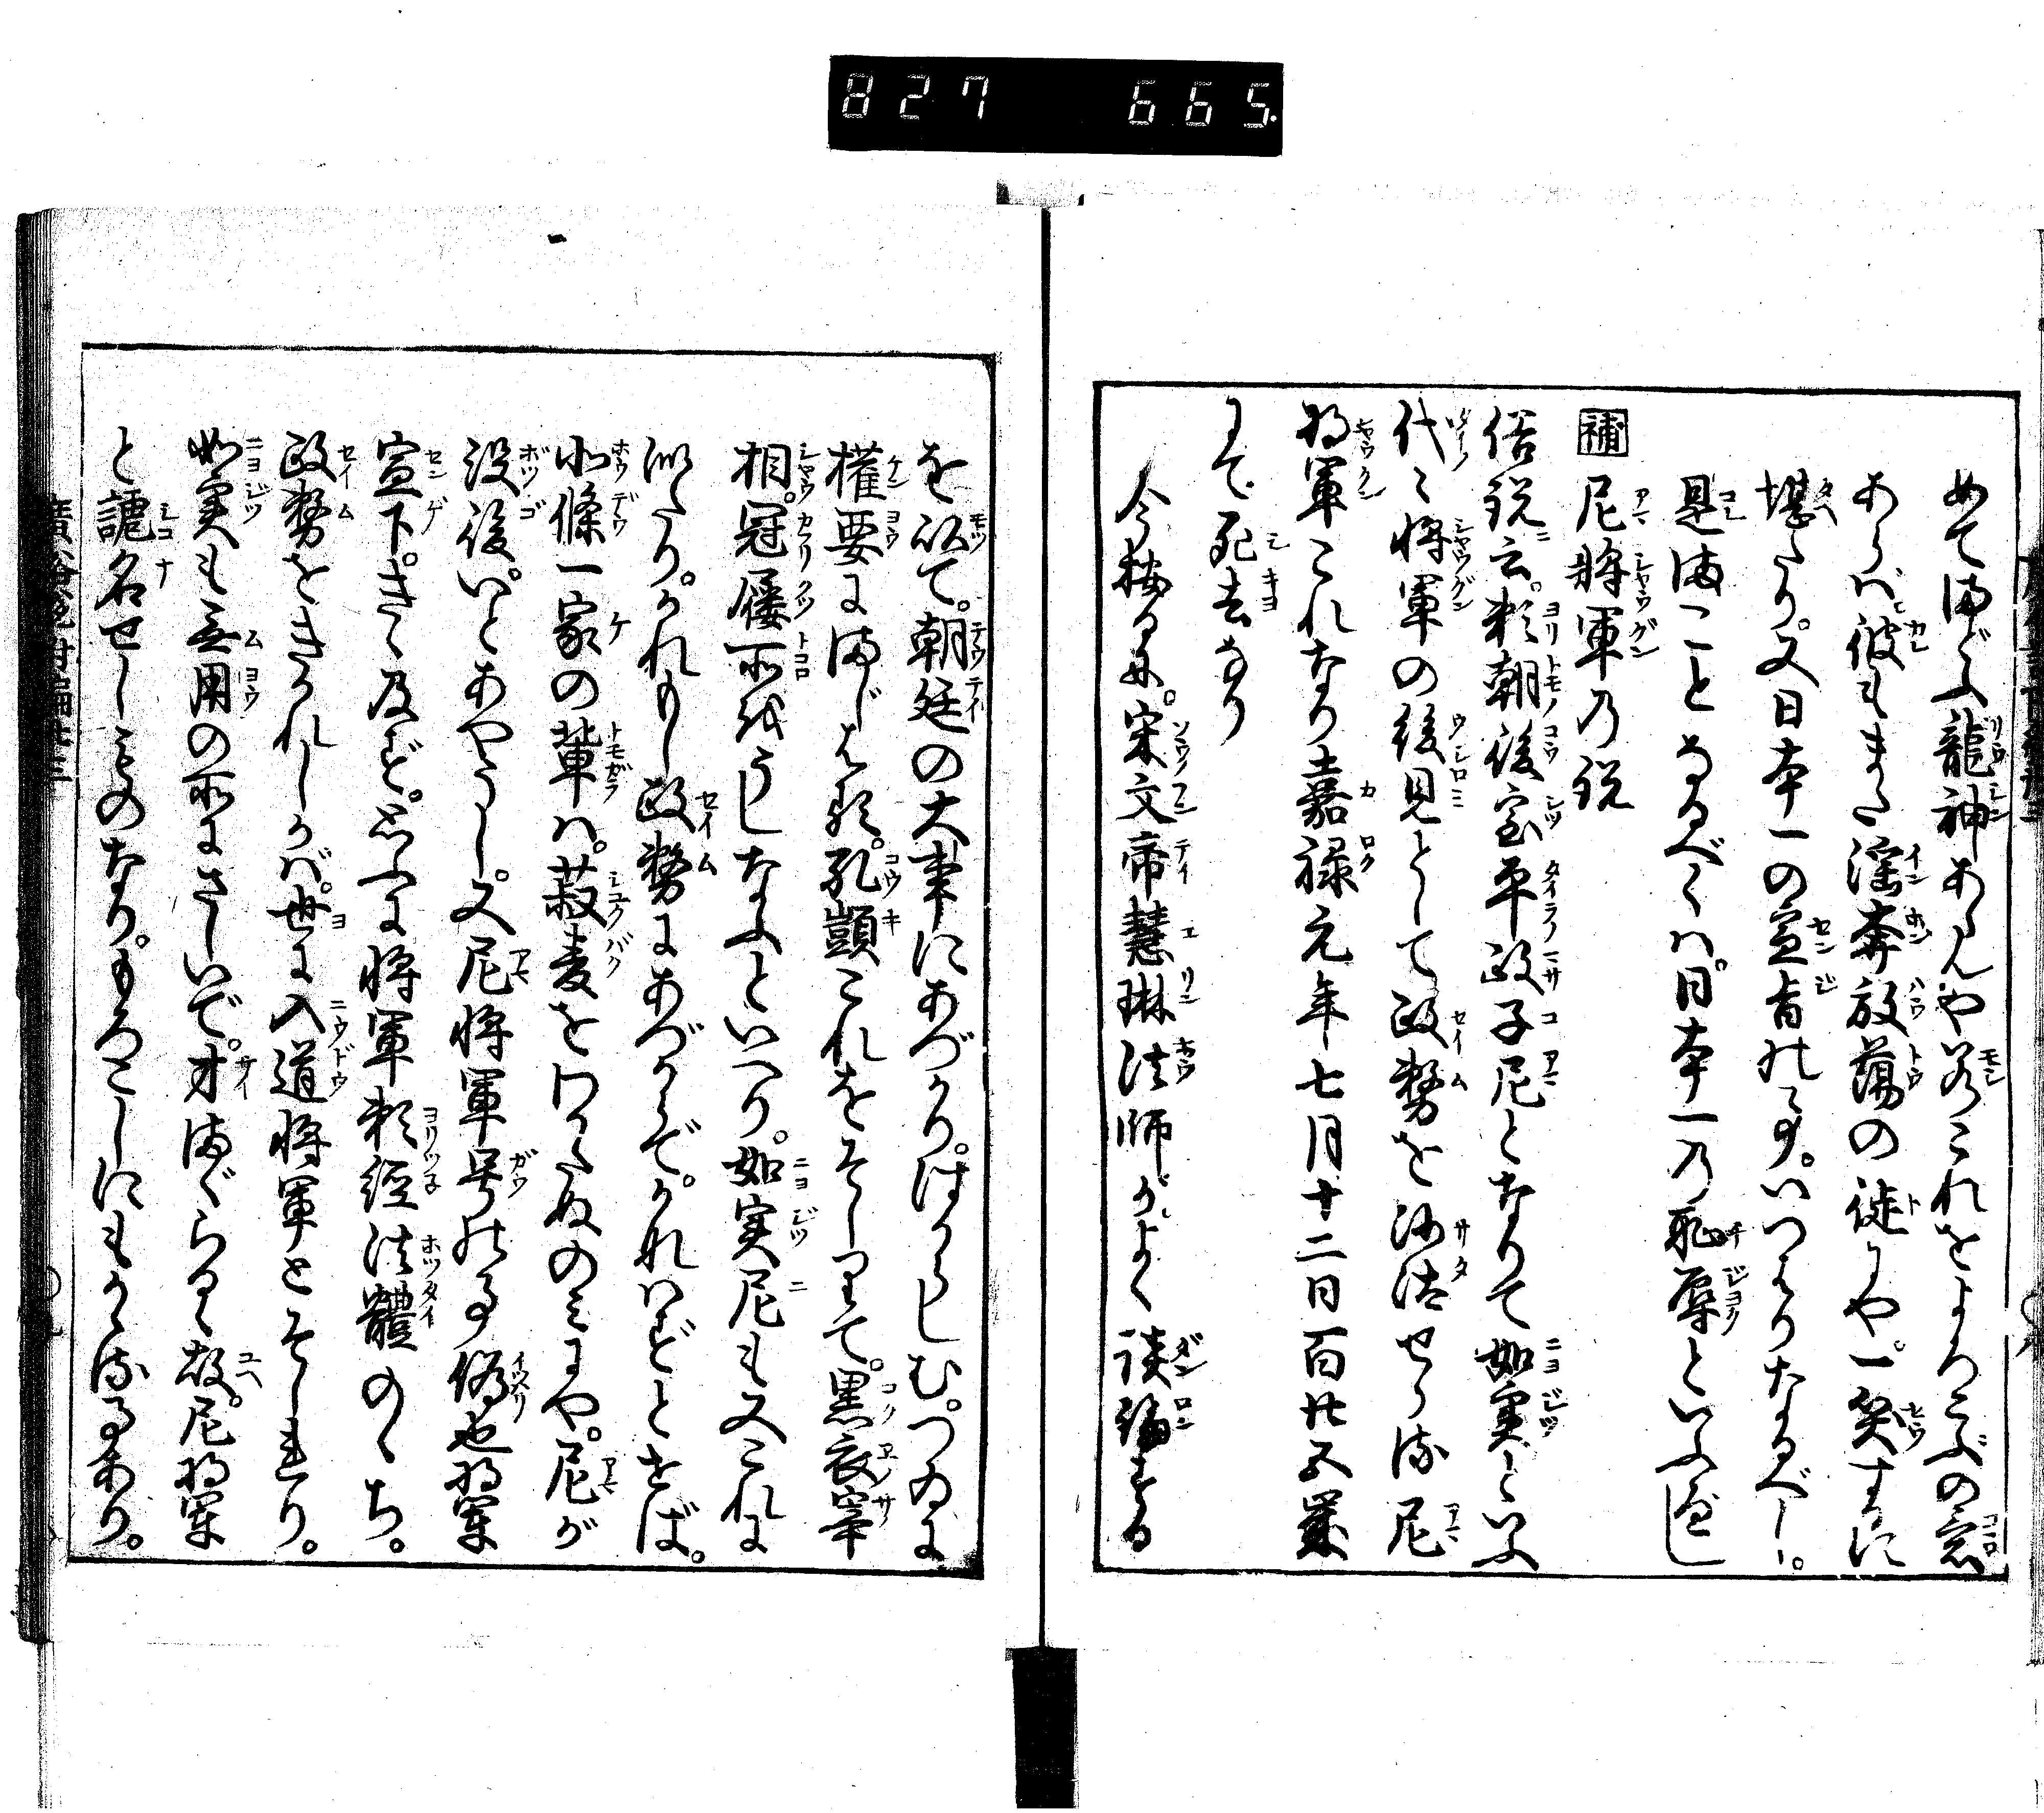 827 665
めてまどふ龍神あらんや若これをよろこぶの意
あらバ彼もまた淫奔放蕩の徒にや。一笑するに
堪たり。又日本一の宣旨の事。いつはりなるべし。
是まことなるべくハ。日本一乃恥辱といふべし
補 尼将軍乃説
俗説云。頼朝後室平政子尼となりて如実といふ
代々将軍の後見として政務を沙汰せらる尼
将軍これなり嘉禄元年七月十二日百廿五歳
にて死去なり
今按るに。宋文帝慧琳法師がよく談論する
を以て。朝廷の大事にあづかり。はからしむ。つゐに
権要にまじはる。孔顗これをそしりて。黒衣宰
相。冠屨所をうしなふといへり。如実尼も又これに
似たり。かれもし政務にあづからで。かれハどとせば。
北條一家の輩ハ。菽麦をわかたぬのミにや。尼が
没後。いとあやうし。又尼将軍号の事偽也将軍
宣下。きゝ及ず。思ふに将軍頼経法體のゝち。
政務をきかれしかば。世に入道将軍とそしれり。
如実も無用の所にさしいで。才まぐらるゝ故。尼将軍
と謔名せしものなり。もろこしにもかゝる事あり。